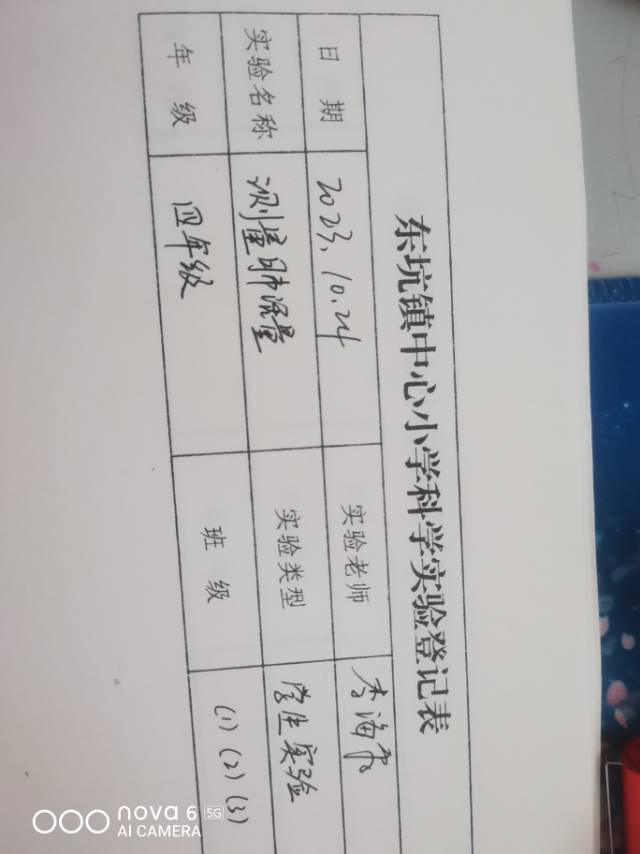 东坑镇中心小学科学实验登记表
日 期 2023.10.24 实验老师 李海
实验名称 测量肺活量 实验类型 学生实验
年 级 四年级 班 级 (1)(2)(3)
nova 6 5G
AI CAMERA